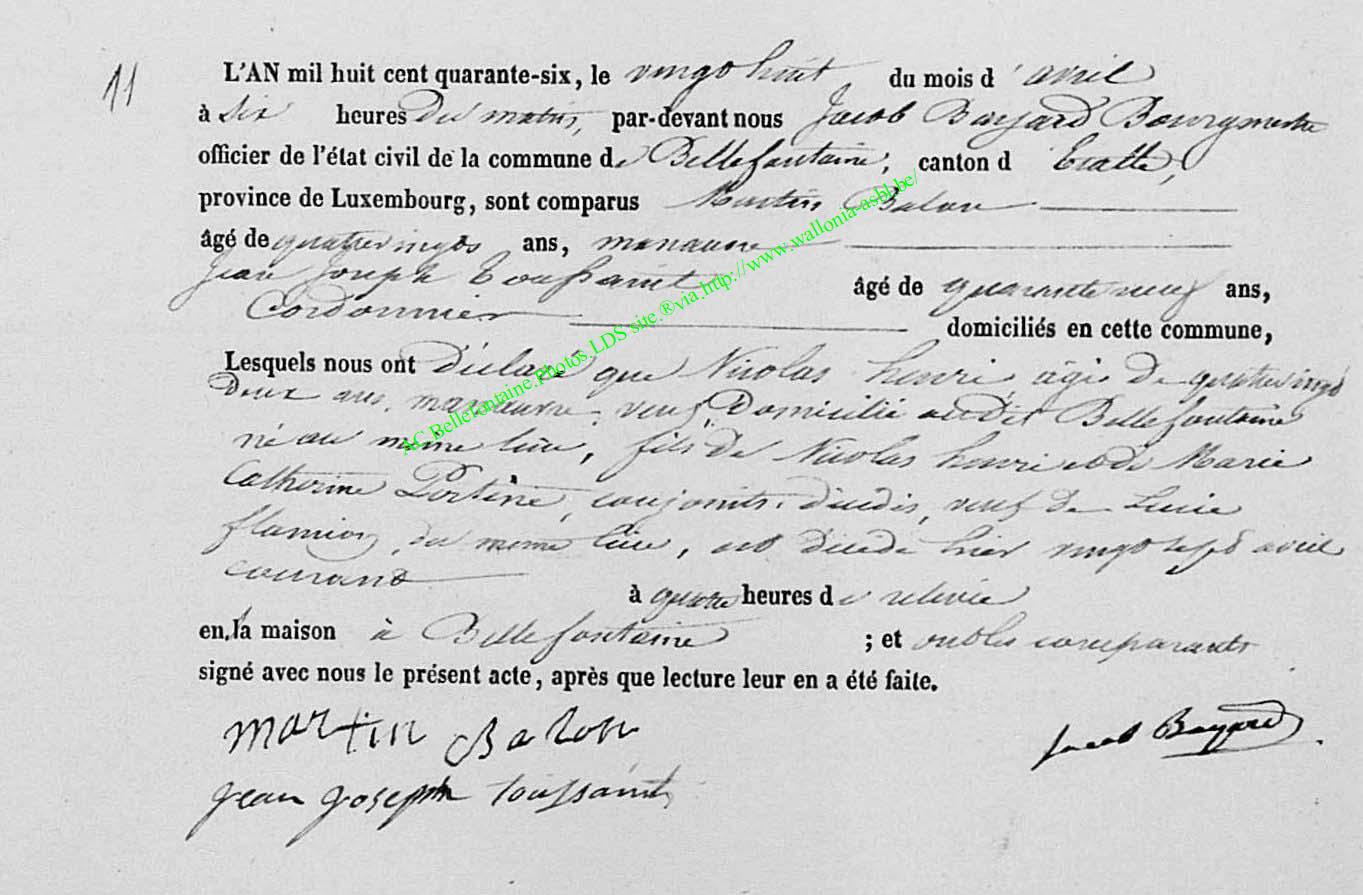 11
L'AN mil huit cent quarante-six, le vingt huit du mois d'avril
à six heures du matin, par-devant nous Jacob Bayard Bourgmestre
officier de l'état civil de la commune de Bellefontaine, canton d'Etalle,
province de Luxembourg, sont comparus Martin Balon
âgé de quatrevingts ans, manœuvre
Jean Joseph Toussaint âgé de quarante neuf ans,
Cordonnier domiciliés en cette commune,
Lesquels nous ont déclaré que Nicolas henri âgé de quatrevingt
deux ans, manœuvre, veuf, domicilié audit Bellefontaine
né au même lieu, fils de Nicolas henri et de Marie
Catherine conjoints, décédés, veuf de Lucie
du même lieu, est décédé hier vingt sept avril
courant à quatre heures de relevée
en la maison à Bellefontaine ; et ont les comparants
signé avec nous le présent acte, après que lecture leur en a été faite.
martin Balon
Jacob Bayard
jean joseph toussaint
AC Bellefontaine.Photos.LDS site.®via.http://www.wallonia-asbl.be/